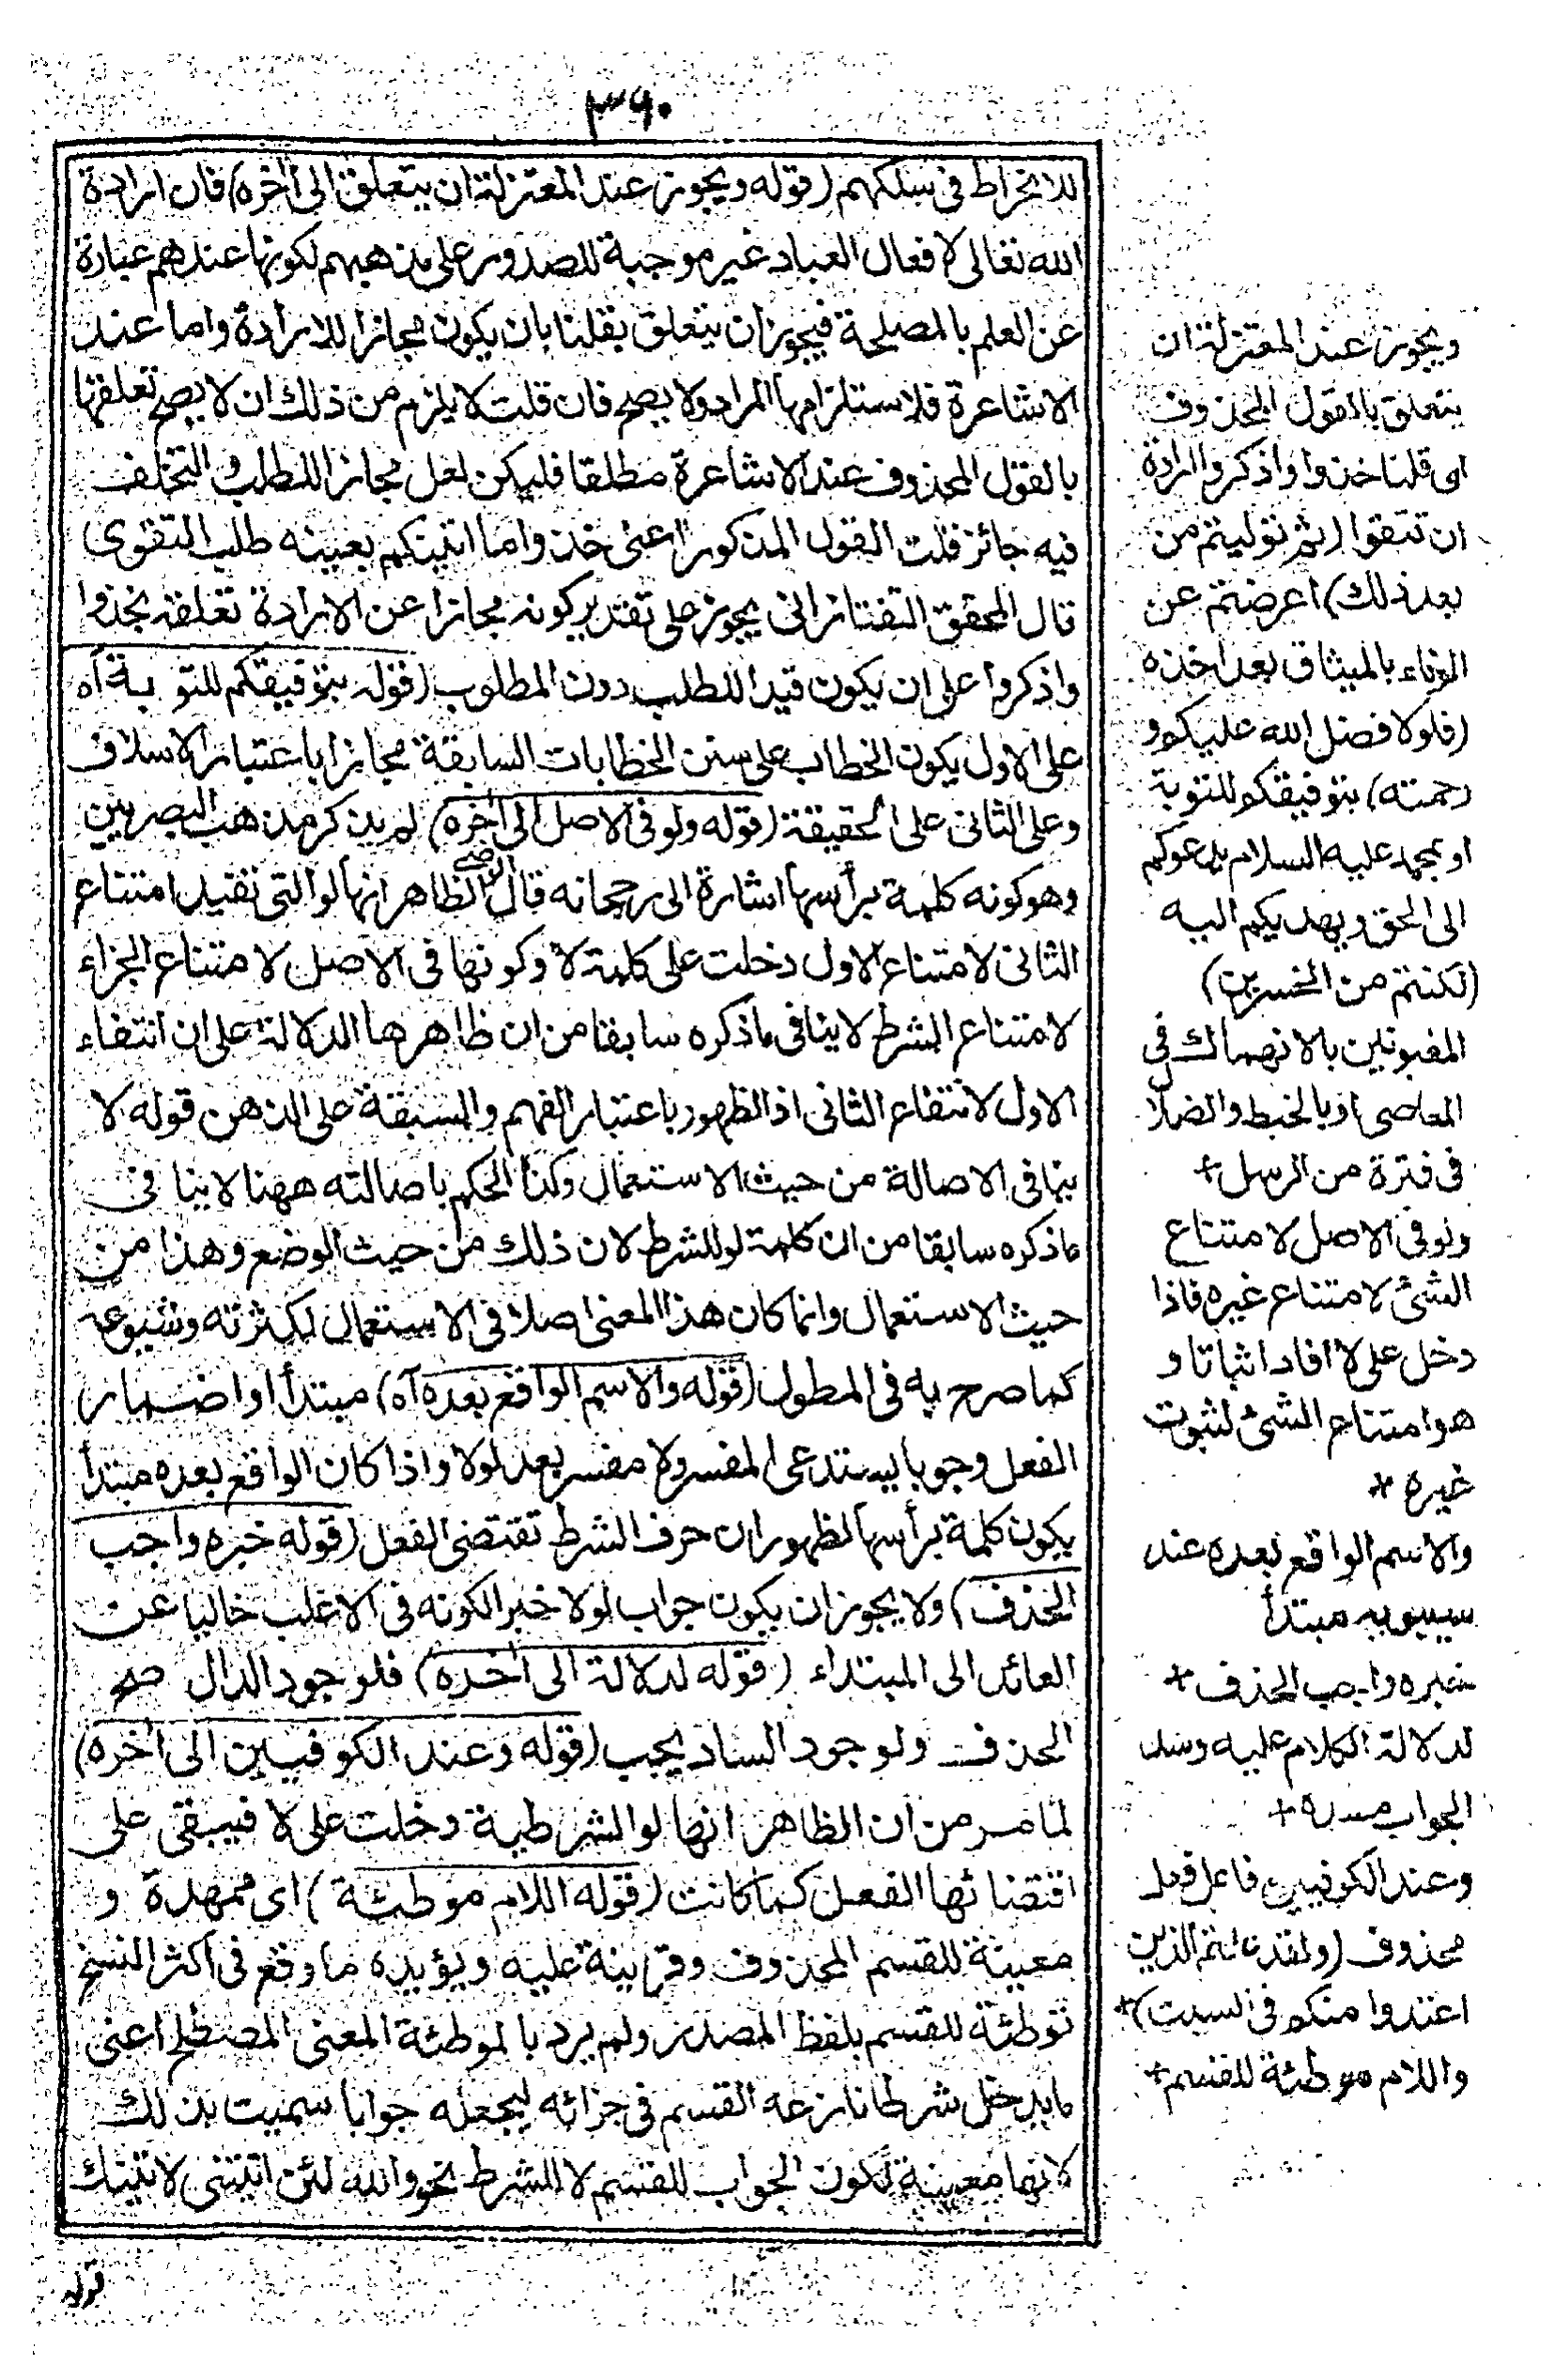 ٣٦٠
للانخراط فى سلكهم (قوله ويجوز عند المعتزلة ان يتعلق الى اخره) فان ارادة
الله تعالى لافعال العباد غير موجبة للصدور على مذهبهم لكونها عندهم عبارة
عن العلم بالمصلحة فيجوز ان يتعلق بقلنا بان يكون مجازا للارادة واما عند
الاشاعرة فلاستلزامها المراد ولا يصح فان قلت لا يلزم من ذلك ان لا يصح تعلقها
بالقول المحذوف عند الاشاعرة مطلقا فليكن لعل مجازا للطلب والتخلف
فيه جائز قلت القول المذكور اعنى خذوا ما اتينكم بعينه طلب التقوى
قال المحقق التفتازانى يجوز على تقدير كونه مجازا عن الارادة تعلقه بخذوا
واذكروا على ان يكون قيدا للطلب دون المطلوب (قوله بتوفيقكم للتوبة آه
على الاول يكون الخطاب على سنن الخطابات السابقة مجازا باعتبار الاسلاف
وعلى الثانى على الحقيقة (قوله ولو فى الاصل الى اخره) لم يذكر مذهب البصريين
وهو كونه كلمة برأسها اشارة الى رجحانه قال الرضى الظاهر انها لو التى تفيد امتناع
الثانى لامتناع الاول دخلت على كلمة لا وكونها فى الاصل لامتناع الجزاء
لامتناع الشرط لا ينافى ما ذكره سابقا من ان ظاهرها الدلالة على ان انتفاء
الاول لانتفاء الثانى اذ الظهور باعتبار الفهم والسبقة على الذهن قوله لا
ينافى الاصالة من حيث الاستعمال وكذا الحكم باصالته ههنا لا ينا فى
ما ذكره سابقا من ان كلمة لو للشرط لان ذلك من حيث الوضع وهذا من
حيث الاستعمال وانما كان هذا المعنى اصلا فى الاستعمال لكثرته وشيوعه
كما صرح به فى المطول (قوله والاسم الواقع بعده آه) مبتدأ او اضمار
الفعل وجوبا يستدعى المفسر ولا مفسر بعد لولا واذا كان الواقع بعده مبتدأ
يكون كلمة برأسها لظهور ان حرف الشرط تقتضى الفعل (قوله خبره واجب
الحذف) ولا يجوز ان يكون جواب لولا خبرا لكونه فى الاغلب خاليا عن
العائد الى المبتداء (قوله لدلالة الى اخره) فلوجود الدال صح
الحذف ولوجود الساد يجب (قوله وعند الكوفيين الى اخره)
لما مر من ان الظاهر انها لو الشرطية دخلت على لا فيبقى على
اقتضائها الفعل كما كانت (قوله اللام موطئة) اى ممهدة و
معينة للقسم المحذوف وقرينة عليه ويؤيده ما وقع فى اكثر النسخ
توطئة للقسم بلفظ المصدر ولم يرد بالموطئة المعنى المصطلح اعنى
ما يدخل شرطا نازعه القسم فى جزائه ليجعله جوابا سميت بذلك
لانها معينة لكون الجواب للقسم لا للشرط نحو والله لئن اتيتنى لاتيتك
قوله
ويجوز عند المعتزلة ان
يتعلق بالقول المحذوف
اى قلنا خذوا واذكروا ارادة
ان تتقوا (ثم توليتم من
بعد ذلك) اعرضتم عن
الوفاء بالميثاق بعد اخذه
(فلولا فضل الله عليكم و
رحمته) بتوفيقكم للتوبة
او بمحمد عليه السلام يدعوكم
الى الحق ويهديكم اليه
(لكنتم من الخسرين)
المغبونين بالانهماك فى
المعاصى او بالخبط والضلال
فى فترة من الرسل+
ولو فى الاصل لامتناع
الشئ لامتناع غيره فاذا
دخل على لا افاد اثباتا و
هو امتناع الشئ لثبوت
غيره *
والاسم الواقع بعده عند
سيبويه مبتدأ
خبره واجب الحذف+
لدلالة الكلام عليه وسد
الجواب مسده+
وعند الكوفيين فاعل فعل
محذوف (ولقد علمتم الذين
اعتدوا منكم فى السبت)+
واللام موطئة للقسم+